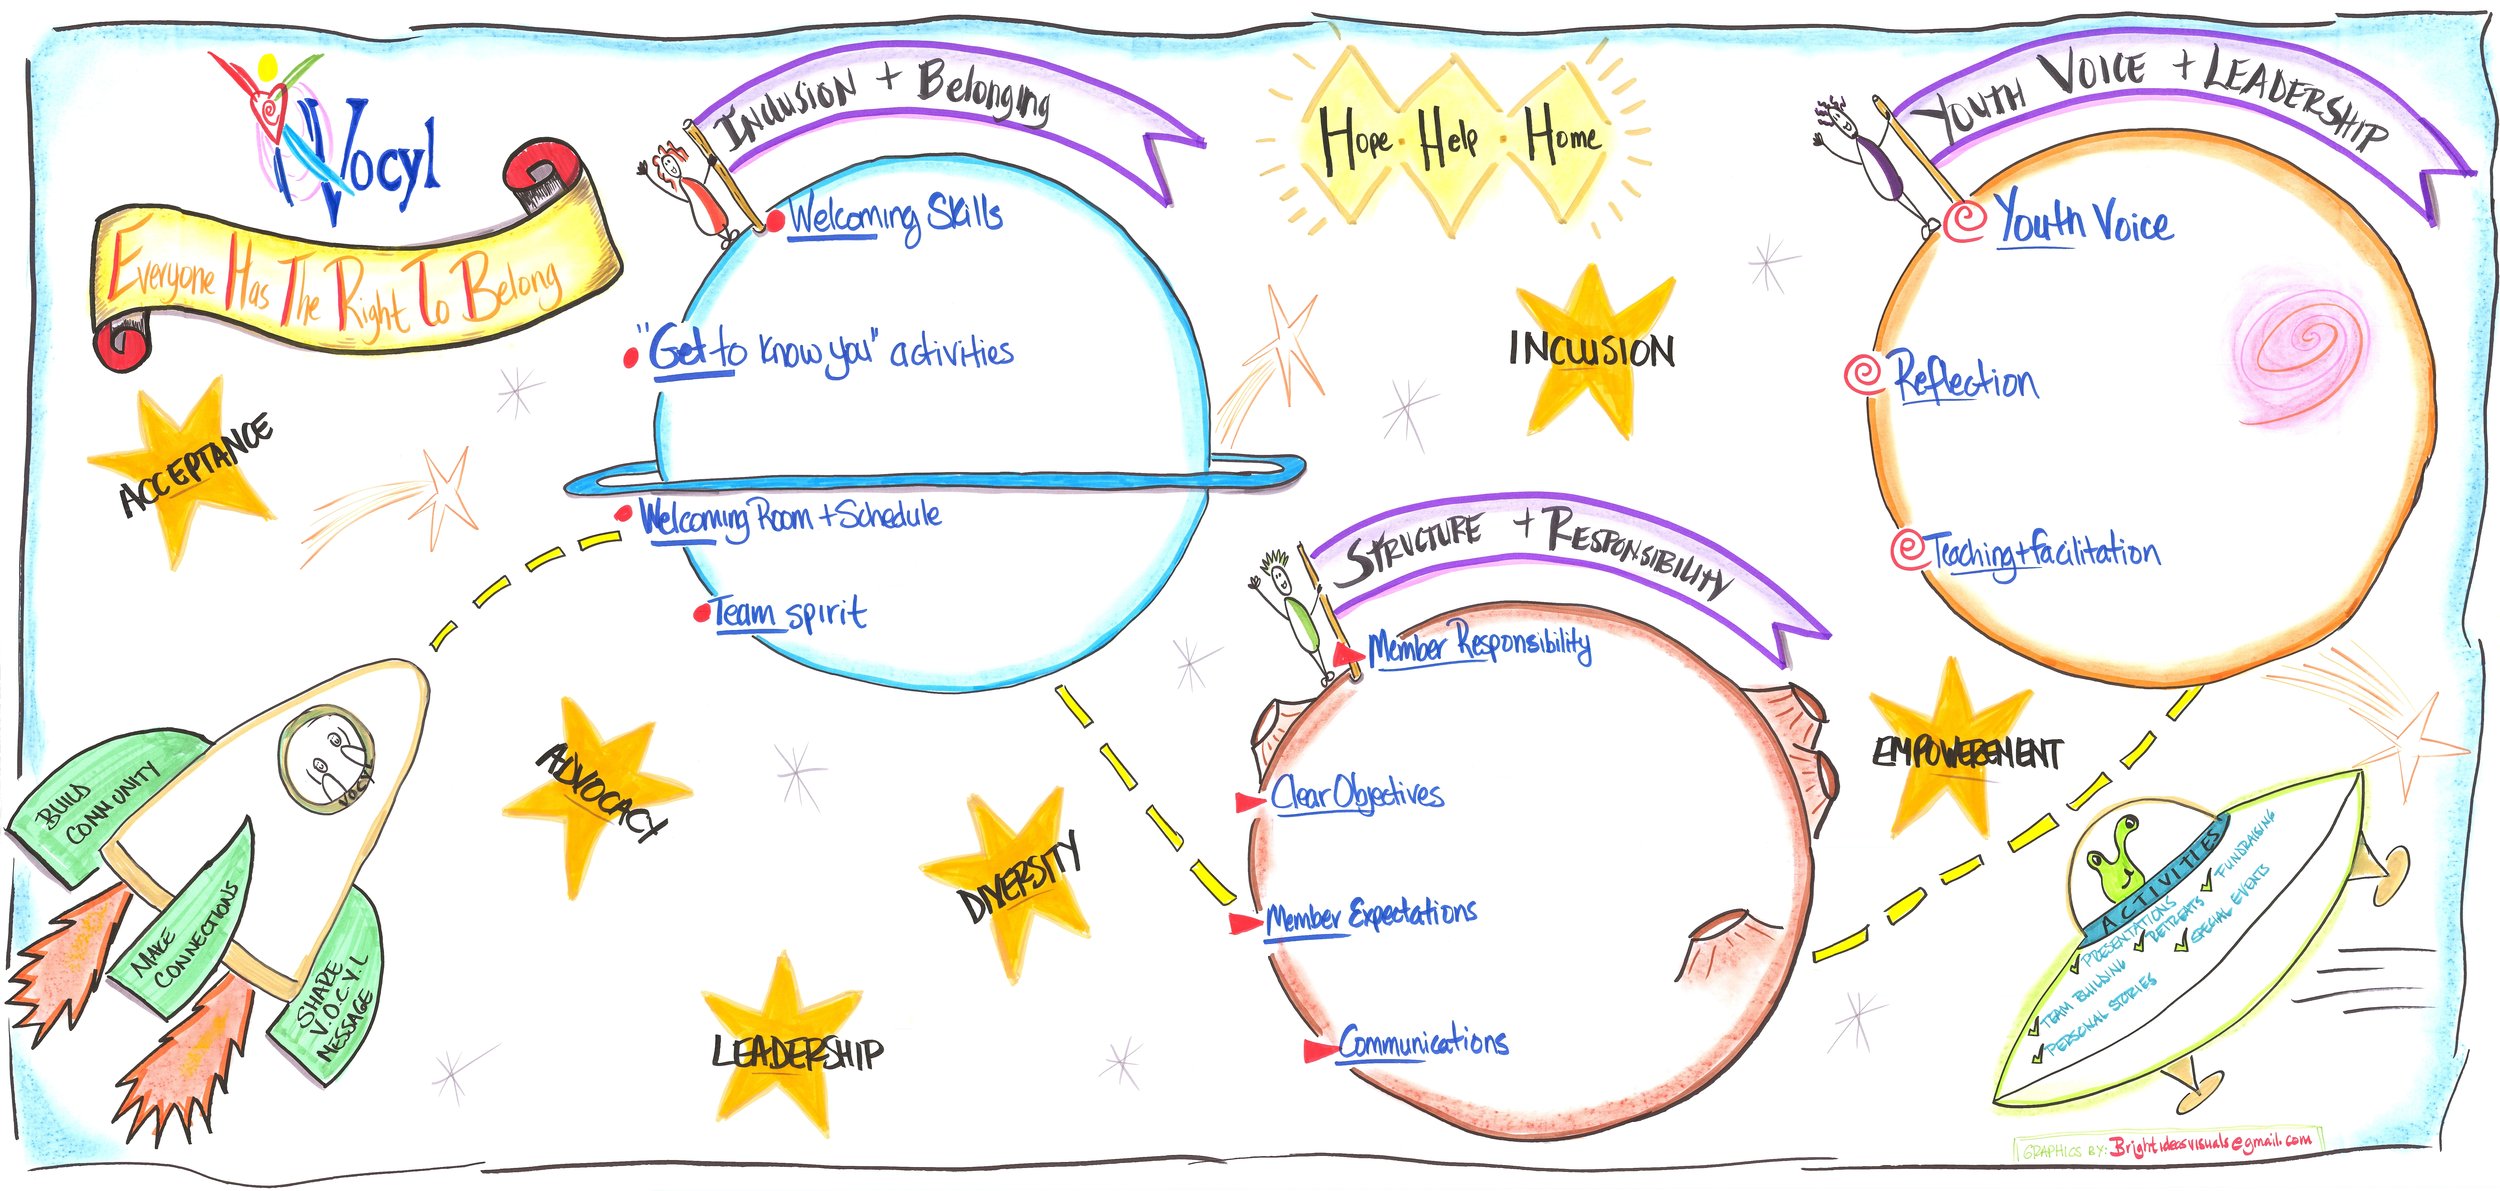 Vocyl
Everyone Has The Right To Belong
Inclusion + Belonging
Welcoming Skills
"Get to know you" activities
Welcoming Room + Schedule
Team spirit
Hope · Help · Home
Youth Voice + Leadership
Youth Voice
Reflection
Teaching + facilitation
Structure + Responsibility
Member Responsibility
Clear Objectives
Member Expectations
Communications
ACCEPTANCE
INCLUSION
ADVOCACY
DIVERSITY
LEADERSHIP
EMPOWEREMENT
BUILD
COMMUNITY
MAKE
CONNECTIONS
SHARE
V.O.C.Y.L
MESSAGE
VOCYL
ACTIVITIES
PRESENTATIONS
RETREATS
FUNDRAISING
TEAM BUILDING
SPECIAL EVENTS
PERSONAL STORIES
GRAPHICS BY: Brightideasvisuals@gmail.com